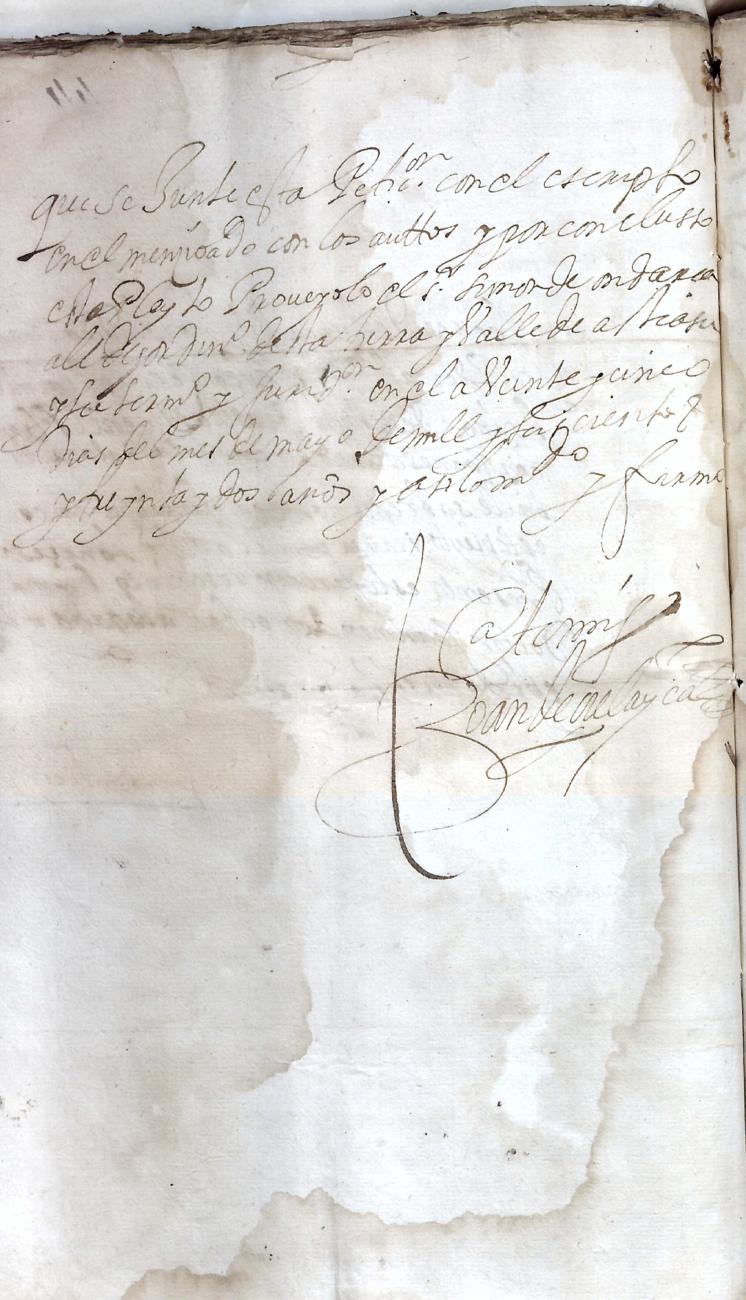 que se Junte esta Petiçon con el escripto
en el mençioado con los auttos y por conclusso
este Pleyto Proueyolo el sr simon de ondarça
allde hordino desta tierra y Valle de
y su termo y Juridon en el a Veinte y cinco
dias del mes de mayo de mill y seiscientos
y treynta y dos años y assi lo mdo y firmo
Ante mi
Joan de